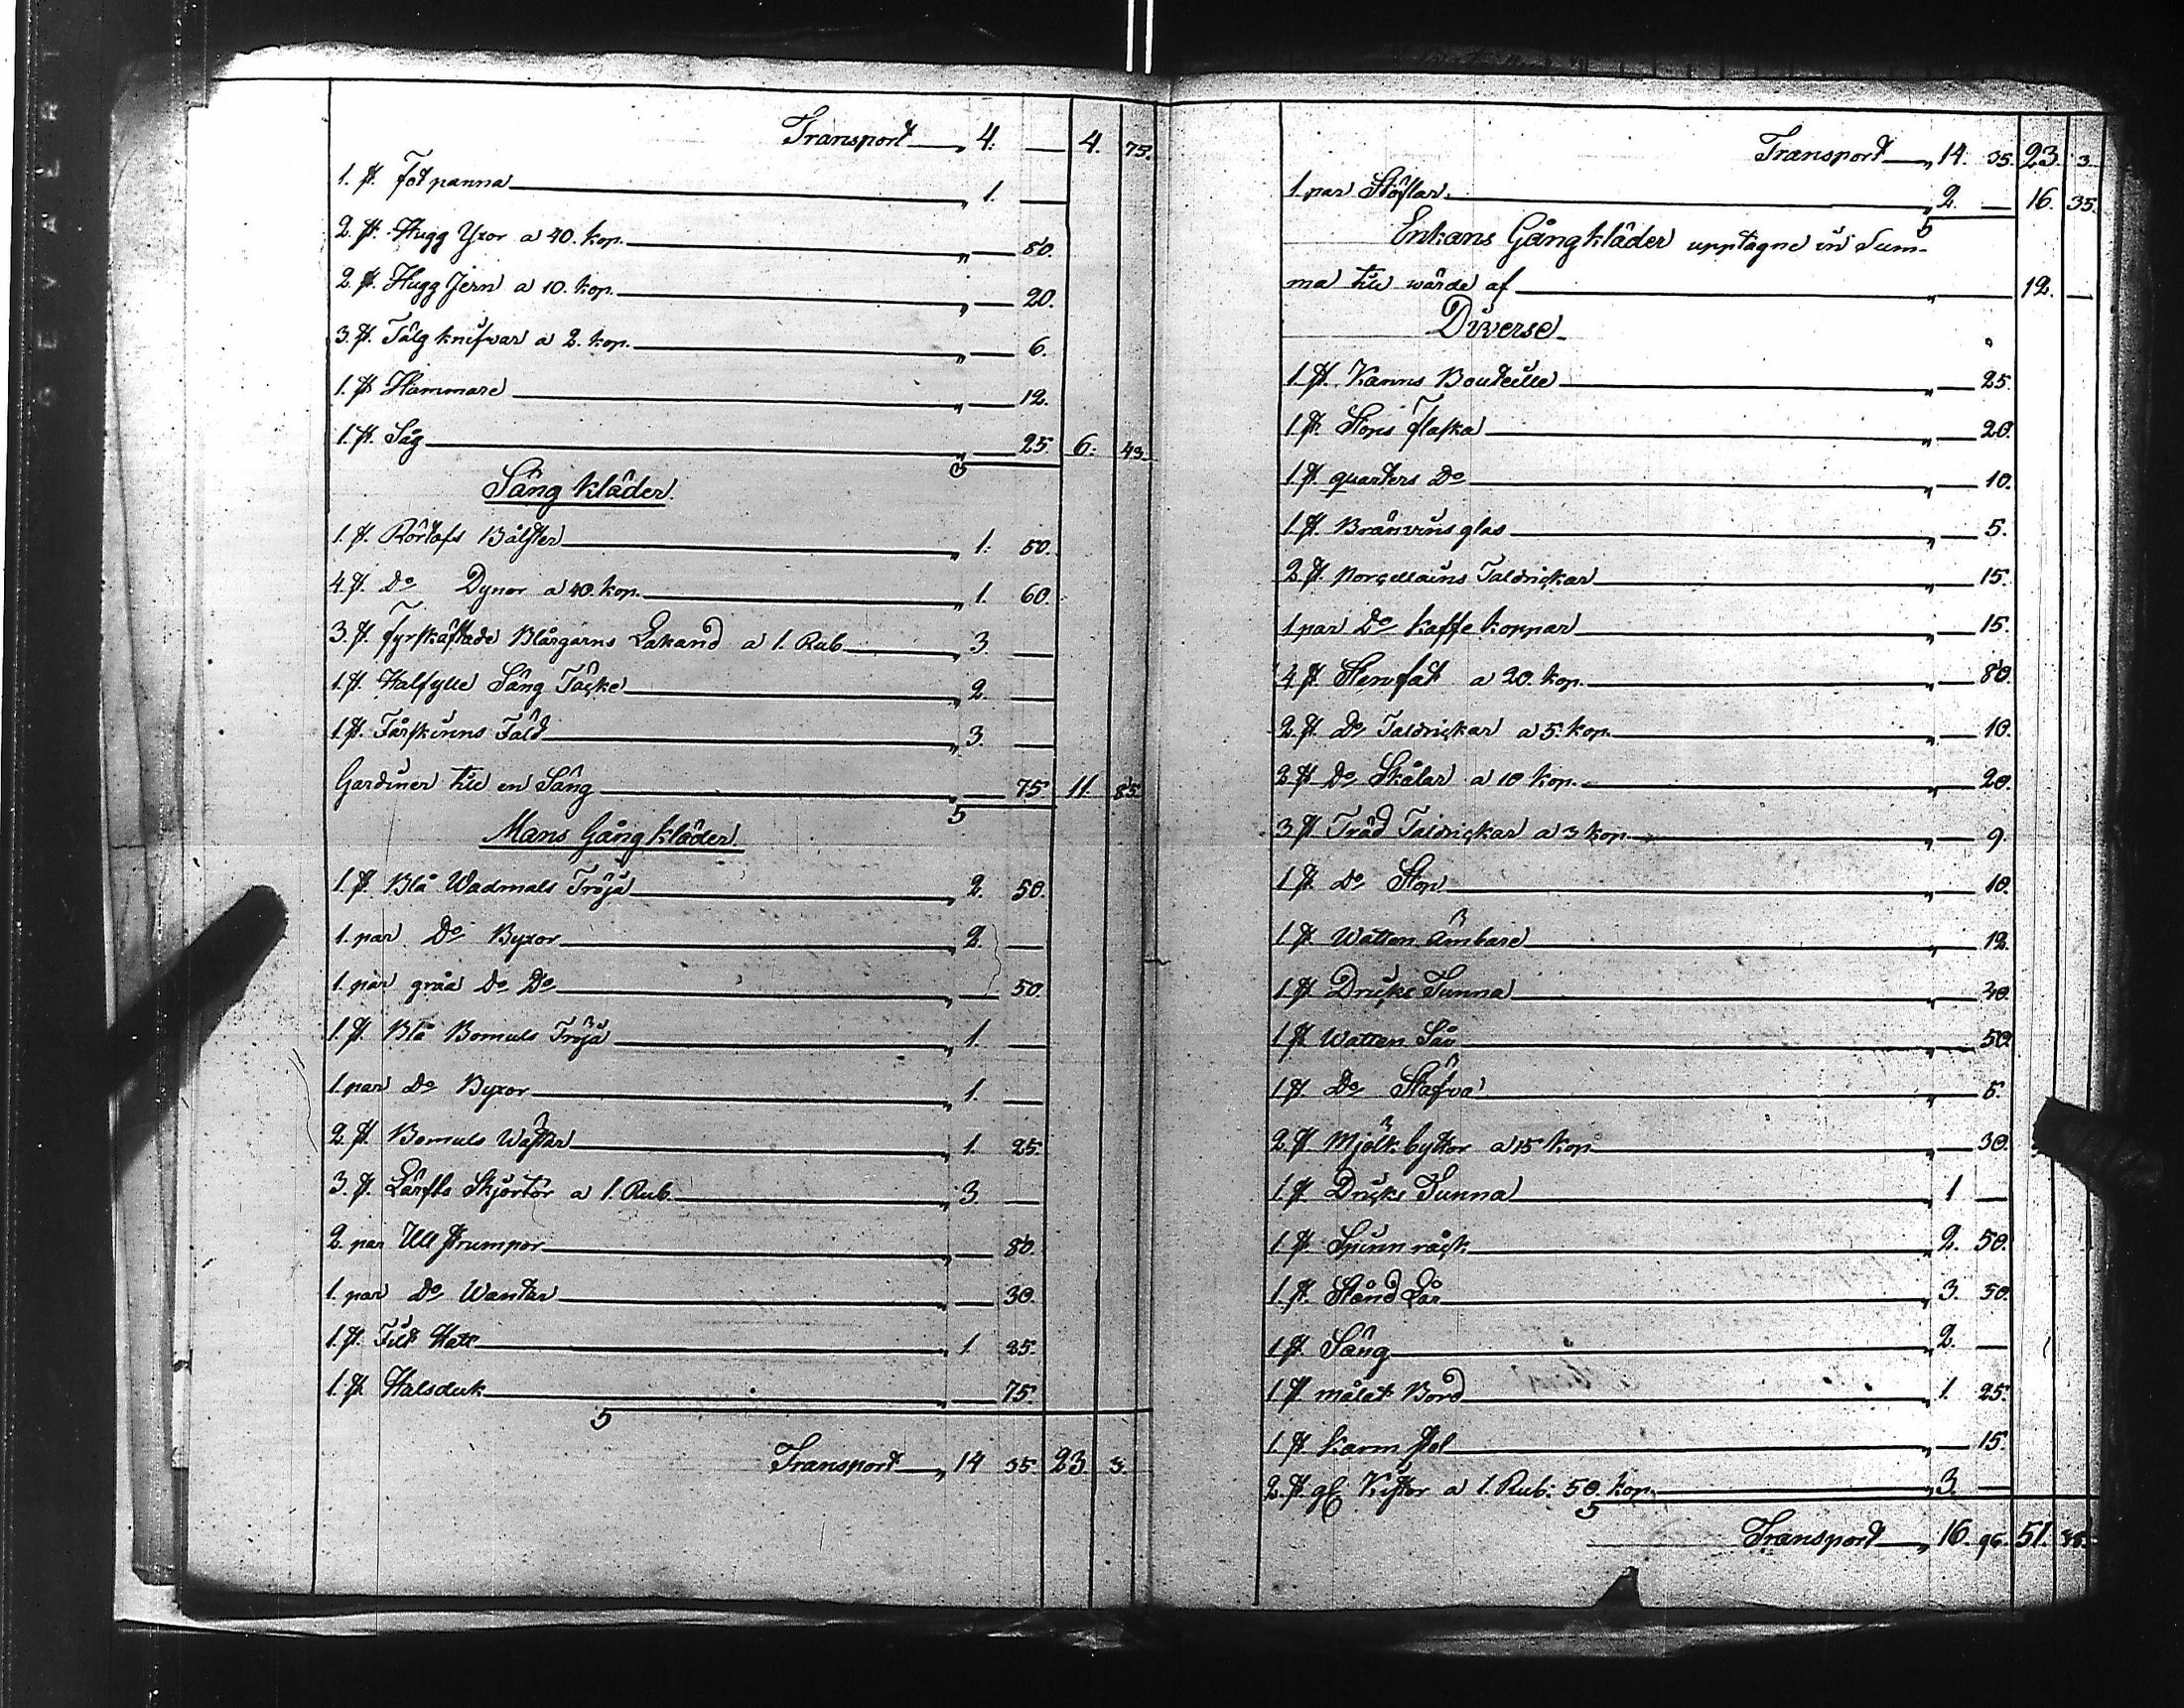 Transport „ 4. — 4. 75.
1. st. Fot panna „ 1. —
2. st. Hugg Yxor a 40. kop. „ — 80.
2. st. Hugg Jern a 10. kop. „ — 20.
3. st. Tälg knifvar a 2. kop. „ — 6.
1. st Hammare „ — 12.
1. st. Såg „ — 25. 6. 43.
Säng kläder.
1. st. Rörtafs Bålster „ 1. 50.
4. st. Do Dynor a 40. kop. „ 1. 60.
3. st. Fyrskäftade Blårgarns Lakand a 1. Rub „ 3. —
1. st. Halfylle Säng Täcke „ 2. —
1. st. Fårskinns Fäld „ 3. —
Gardiner till en Säng „ — 75. 11. 85.
Mans Gång kläder.
1. st. Blå Wadmals Tröja „ 2. 50.
1. par Do Byxor „ 2. —
1. par gråa Do Do „ — 50.
1. st. Blå Bomuls Tröja „ 1. —
1. par Do Byxor „ 1. —
2. st. Bomuls Wästar „ 1. 25.
3. st. Lärfts Skjortor a 1. Rub. „ 3. —
2. par Ull strumpor „ — 80.
1. par Do Wantar „ — 30.
1. st. Filt Hatt „ 1. 25.
1. st. Halsduk „ — 75.
Transport „ 14 35. 23. 3.
Transport „ 14. 35. 23. 3.
1. par Stöflar. „ 2. — 16. 35.
Enkans Gångkläder upptagne i en Sum-
ma till wärde af „ — 12. —
Diverse
1. st. Kanns Bouteille „ — 25.
1. st. Stops Flaska „ — 20.
1. st. quarters Do „ — 10.
1. st. Bränvins glas „ — 5.
2. st. porcellains Taldrickar „ — 15.
1. par Do Kaffe koppar „ — 15.
4. st. Stenfat a 20. kop. „ — 80.
2. st. Do Taldrickar a 5. kop. „ — 10.
2 st Do Skålar a 10 kop. „ — 20.
3 st Träd Taldrickar a 3 kop. „ — 9.
1 st. Do Stop „ — 10.
1. st Watten Ämbare „ — 12.
1 st Dricke Tunna „ — 30.
1 st Watten Så „ — 50.
1 st. Do Stäfva „ — 5.
2. st. Mjölk byttor a 15 kop „ — 30.
1. st Dricks Tunna „ 1 —
1. st. Spinn råck „ 2. 50.
1. st. Stånd Lår „ 3. 50.
1 st Säng „ 2. —
1 st målat Bord „ 1. 25.
1. st Karm stol „ — 15.
2. st. gl: Kistor a 1. Rub: 50. kop. „ 3. —
Transport „ 16. 96. 51. 38.